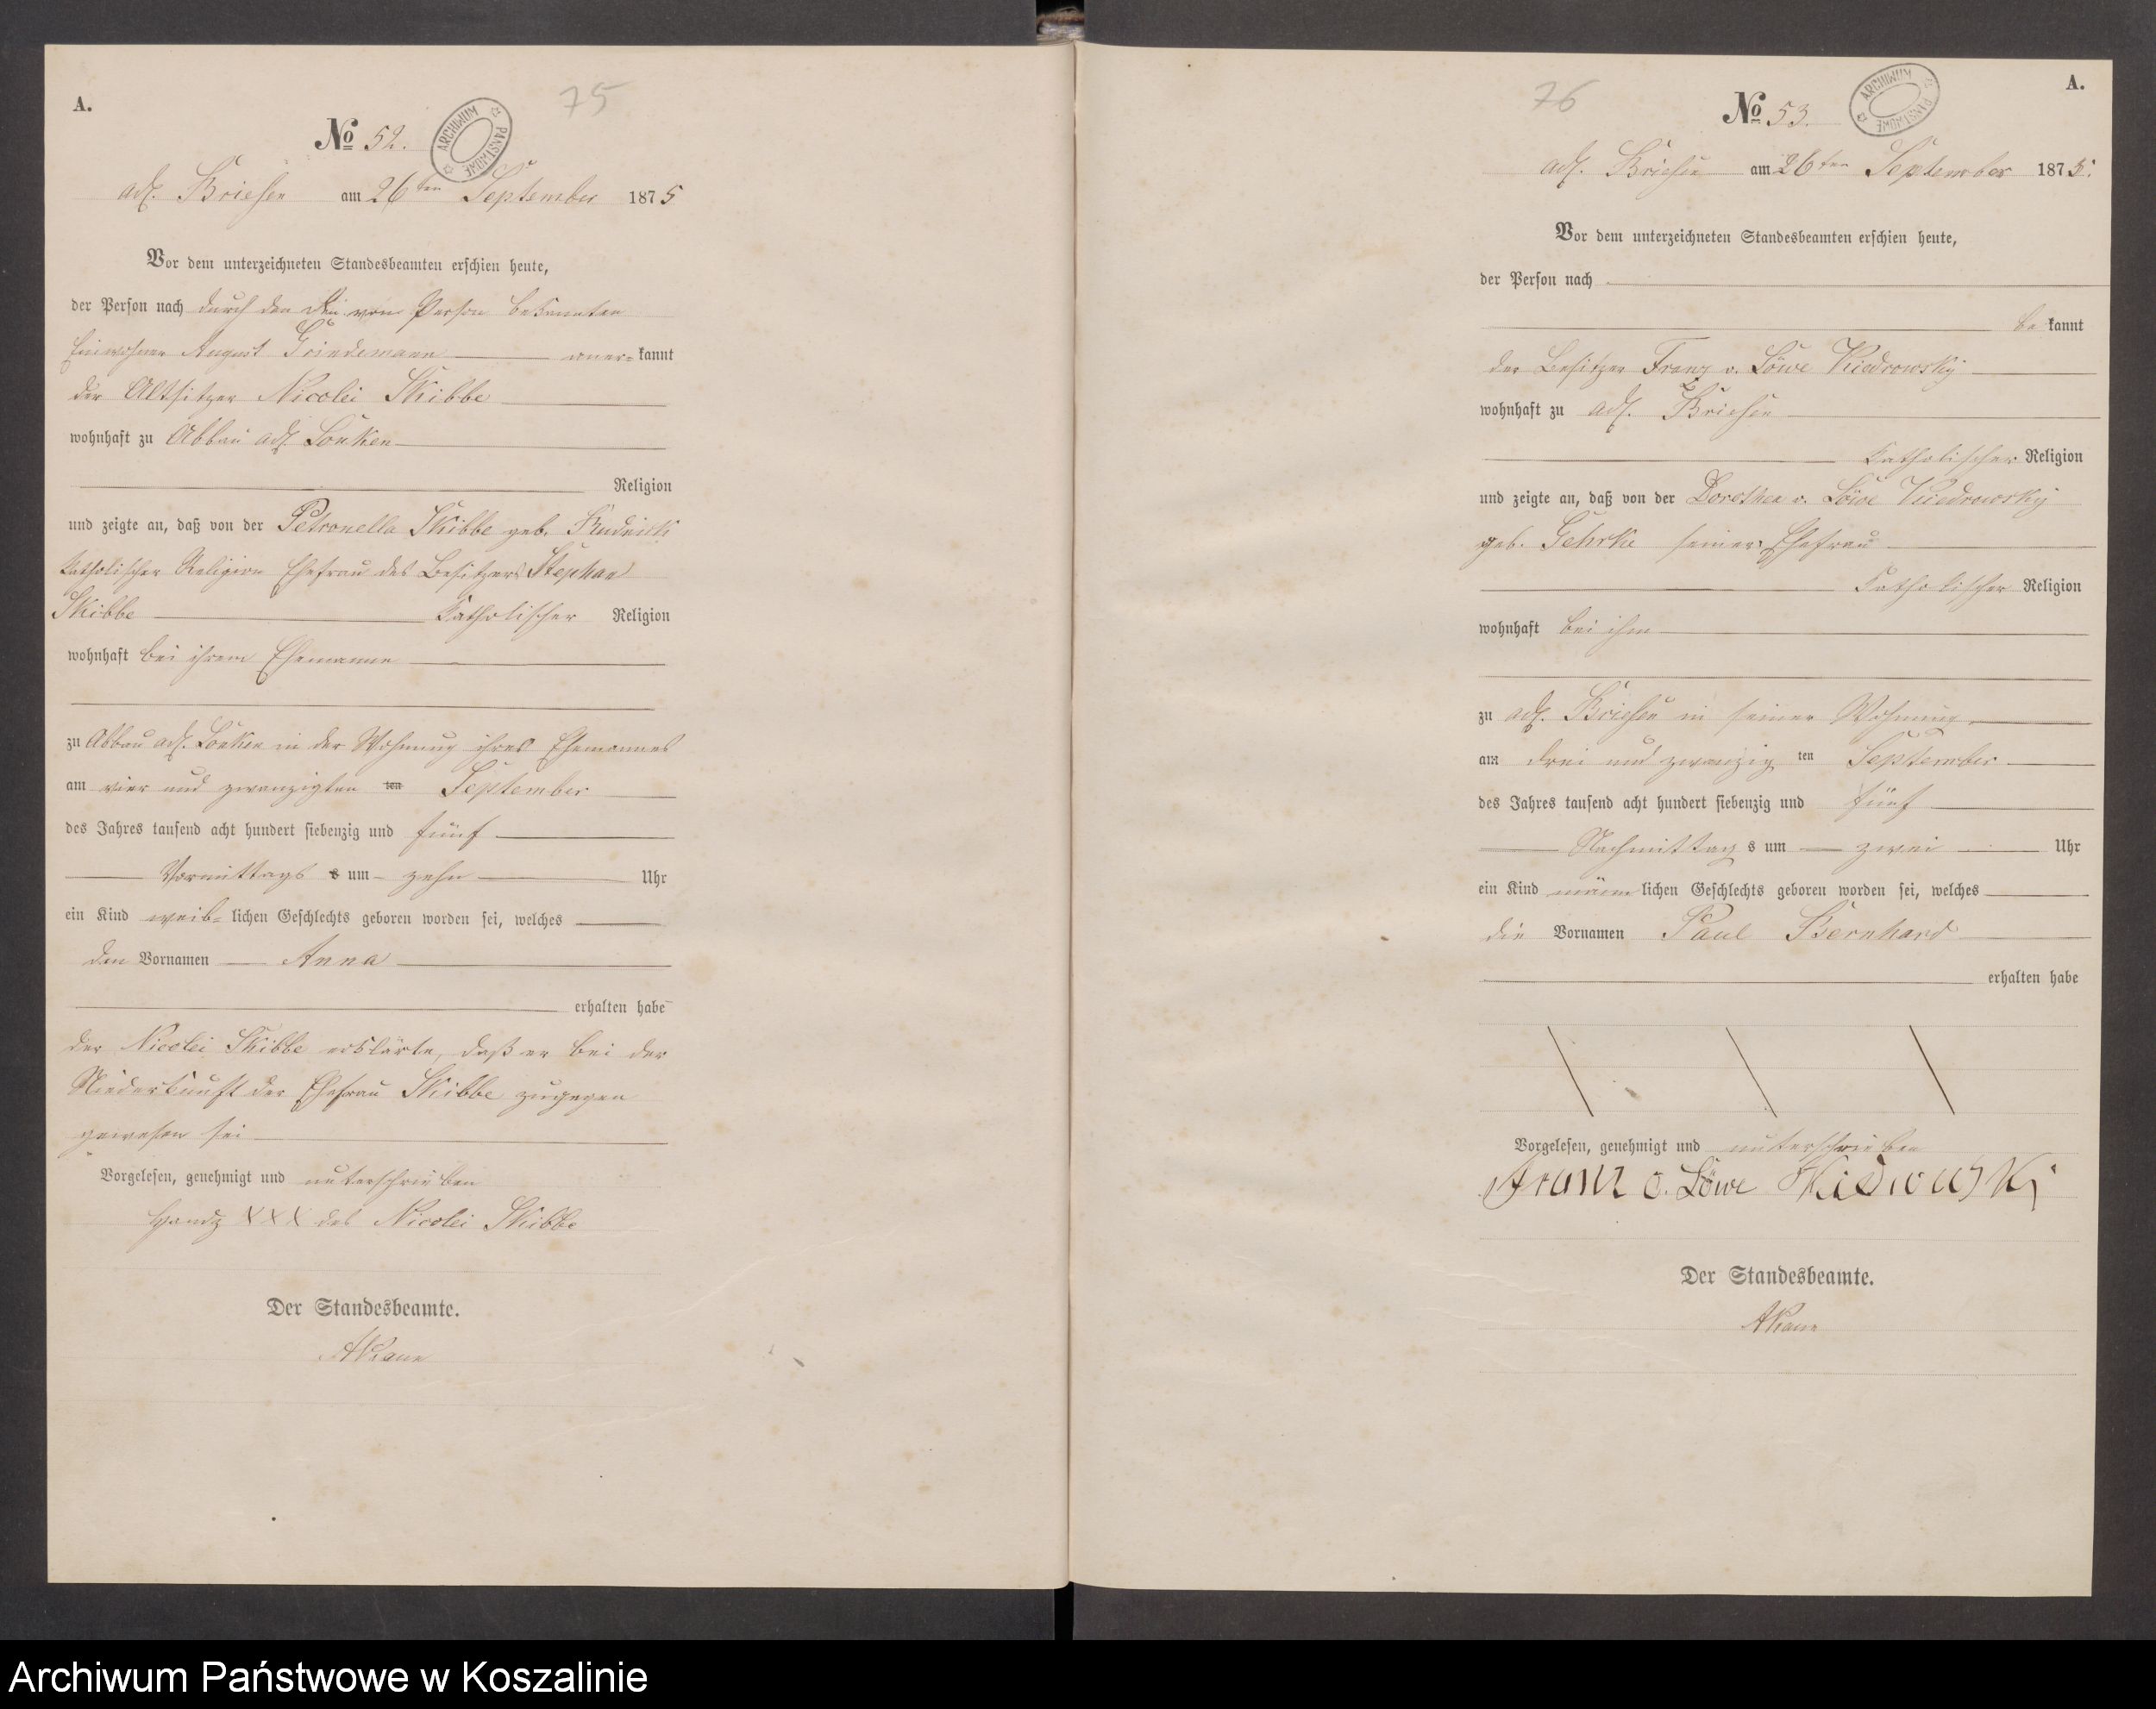 A.
75
No 52.
ARCHIWUM PAŃSTWOWE
adl. Briesen am 26ten September 1875
Vor dem unterzeichneten Standesbeamten erschien heute,
der Person nach durch den von Person bekannten
Einwohner August Griedemann aner= kannt
der Altsitzer Nicolei Skibbe
wohnhaft zu Abbau adl. Lonken
Religion
und zeigte an, daß von der Petronella Skibbe geb.
katholischer Religion Ehefrau des Besitzers Stephan
Skibbe Katholischer Religion
wohnhaft bei ihrem Ehemanne
zu Abbau adl. Lonken in der Wohnung ihres Ehemannes
am vier und zwanzigten ten September
des Jahres tausend acht hundert siebenzig und fünf
Vormittags s um zehn Uhr
ein Kind weib= lichen Geschlechts geboren worden sei, welches
den Vornamen Anna
erhalten habe
Der Nicolei Skibbe erklärte, daß er bei der
Niederkunft der Ehefrau Skibbe zugegen
gewesen sei
Vorgelesen, genehmigt und unterschrieben
Handz XXX des Nicolei Skibbe
Der Standesbeamte.
A.
76
No 53.
ARCHIWUM PAŃSTWOWE
adl. Briesen am 26ten September 1875.
Vor dem unterzeichneten Standesbeamten erschien heute,
der Person nach
be kannt
der Besitzer Franz v. Löwe Kiedrowsky
wohnhaft zu adl. Briesen
Katholischer Religion
und zeigte an, daß von der Dorothea v. Löwe Kiedrowsky
geb. Gehrke seiner Ehefrau
Katholischer Religion
wohnhaft bei ihm
zu adl. Briesen in seiner Wohnung
am drei und zwanzig ten September
des Jahres tausend acht hundert siebenzig und fünf
Nachmittag s um zwei Uhr
ein Kind männ lichen Geschlechts geboren worden sei, welches
die Vornamen Paul Bernhard
erhalten habe
Vorgelesen, genehmigt und unterschrieben
Franz v. Löwe
Der Standesbeamte.
Archiwum Państwowe w Koszalinie